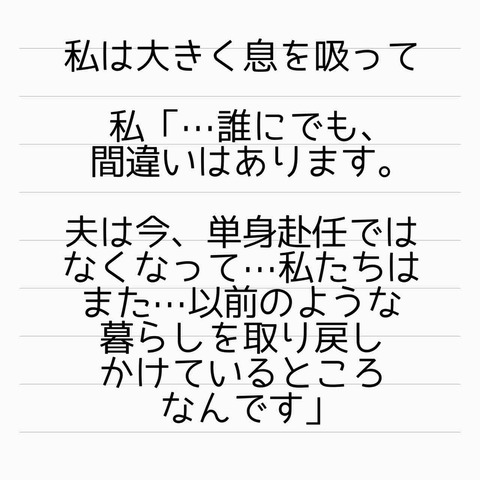 私は大きく息を吸って
私「…誰にでも、
間違いはあります。
夫は今、単身赴任では
なくなって…私たちは
また…以前のような
暮らしを取り戻し
かけているところ
なんです」